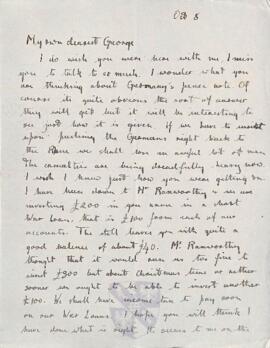 Oct 8
My own dearest George
I do wish you were here with me I miss
you to talk to so much. I wonder what you
are thinking about Germany's peace note. Of
course its quite obvious the sort of answer
they will get but it will be interesting to
see just how it is given. if we have to insist
upon pushing the Germans right back to
the Rhine we shall lose an awful lot of men
The casualties are being dreadfully heavy now.
I wish I knew just how you were getting on
I have been down to Mr Ranworthy & we are
investing £200 in your name in a short
War Loan. that is £100 from each of our
accounts. The still leaves you with quite a
good balance of about £40. Mr Ranworthy
thought that it would suit us too fine to
invest £300 but about Christmas time or rather
sooner we ought to be able to invest another
£100. We shall have income tax to pay soon
on our War Loans. I hope you will think I
have done what is right. It seems to me on the